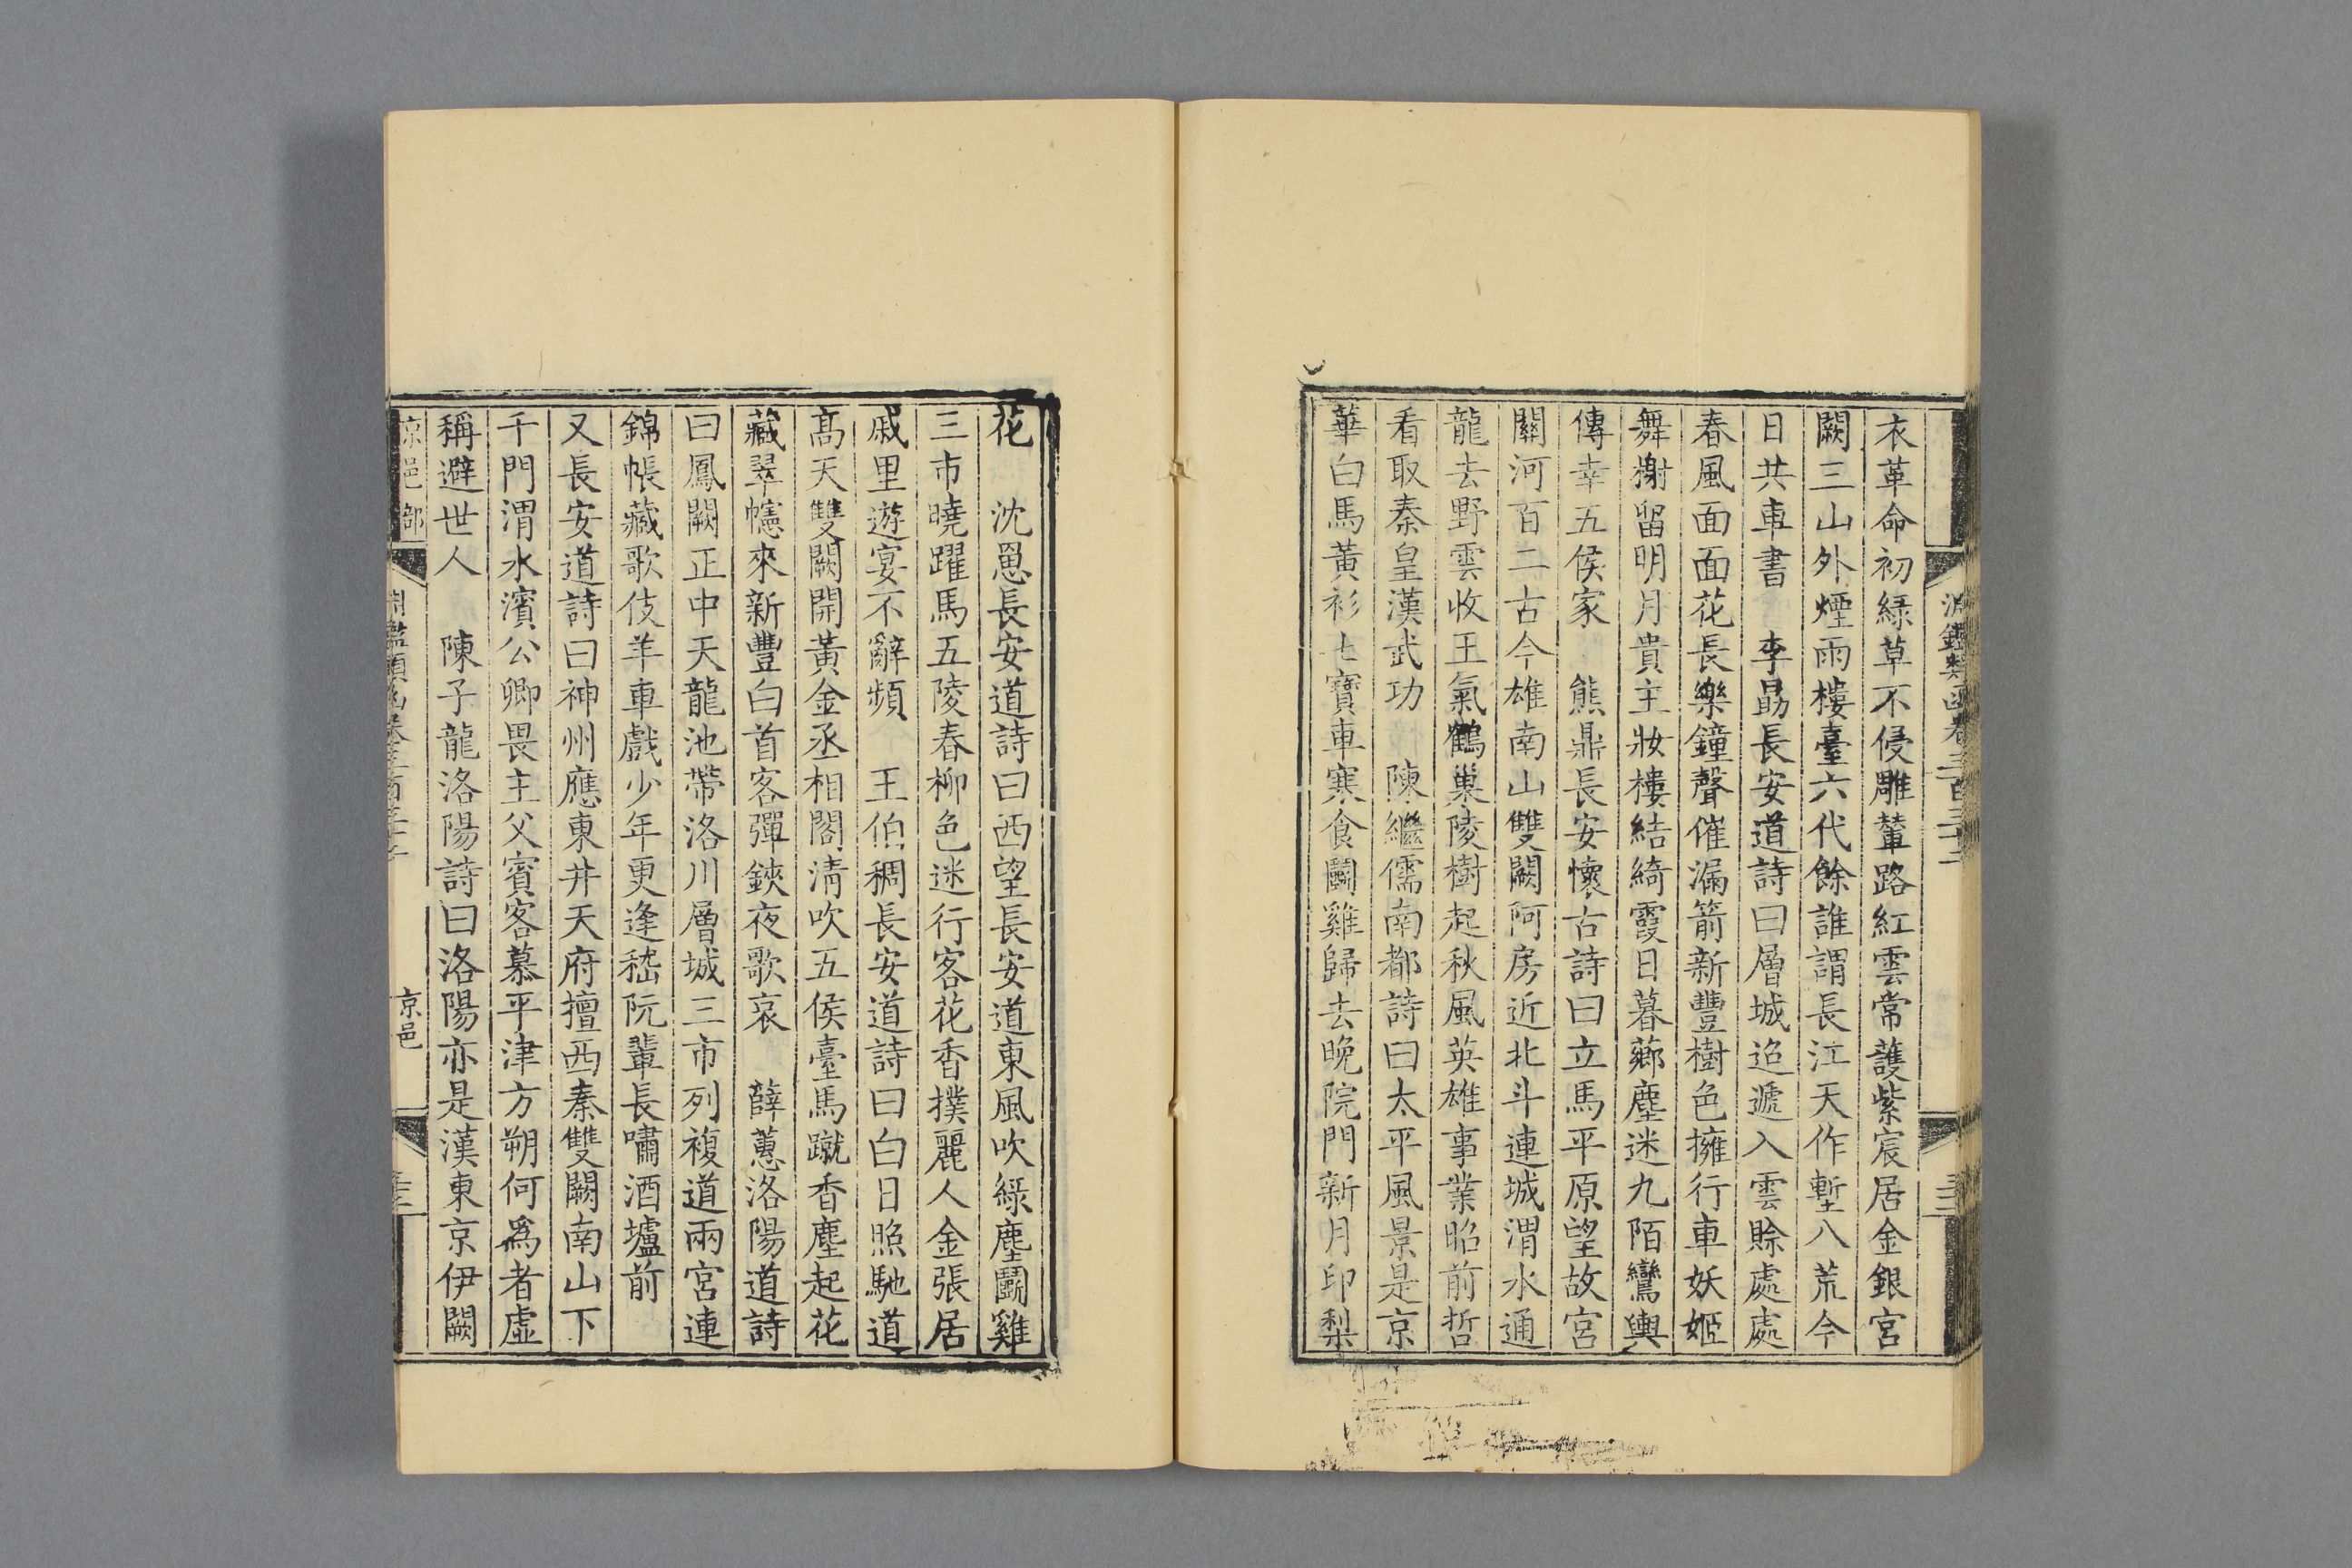 淵鑑類函卷三百三十二
衣革命初綠草不侵雕輦路紅雲常護紫宸居金銀宮
闕三山外煙雨樓臺六代餘誰謂長江天作塹八荒今
日共車書　李勗長安道詩曰層城迢遞入雲賒處處
春風面面花長樂鐘聲催漏箭新豐樹色擁行車妖姬
舞榭留明月貴主妝樓結綺霞日暮薌塵迷九陌鸞輿
傳幸五侯家　熊鼎長安懷古詩曰立馬平原望故宮
關河百二古今雄南山雙闕阿房近北斗連城渭水通
龍去野雲收王氣鶴巢陵樹起秋風英雄事業昭前哲
看取秦皇漢武功　陳繼儒南都詩曰太平風景是京
華白馬黃衫七寶車寒食鬭雞歸去晚院門新月印梨
花　沈愚長安道詩曰西望長安道東風吹綠塵鬭雞
三市曉躍馬五陵春柳色迷行客花香撲麗人金張居
戚里遊宴不辭頻　王伯稠長安道詩曰白日照馳道
高天雙闕開黃金丞相閣清吹五侯臺馬蹴香塵起花
藏翠幰來新豐白首客彈鋏夜歌哀　薛蕙洛陽道詩
曰鳳闕正中天龍池帶洛川層城三市列複道兩宮連
錦帳藏歌伎羊車戲少年更逢嵇阮輩長嘯酒壚前
又長安道詩曰神州應東井天府擅西秦雙闕南山下
千門渭水濱公卿畏主父賓客慕平津方朔何爲者虛
稱避世人　陳子龍洛陽詩曰洛陽亦是漢東京伊闕
京邑部
京邑